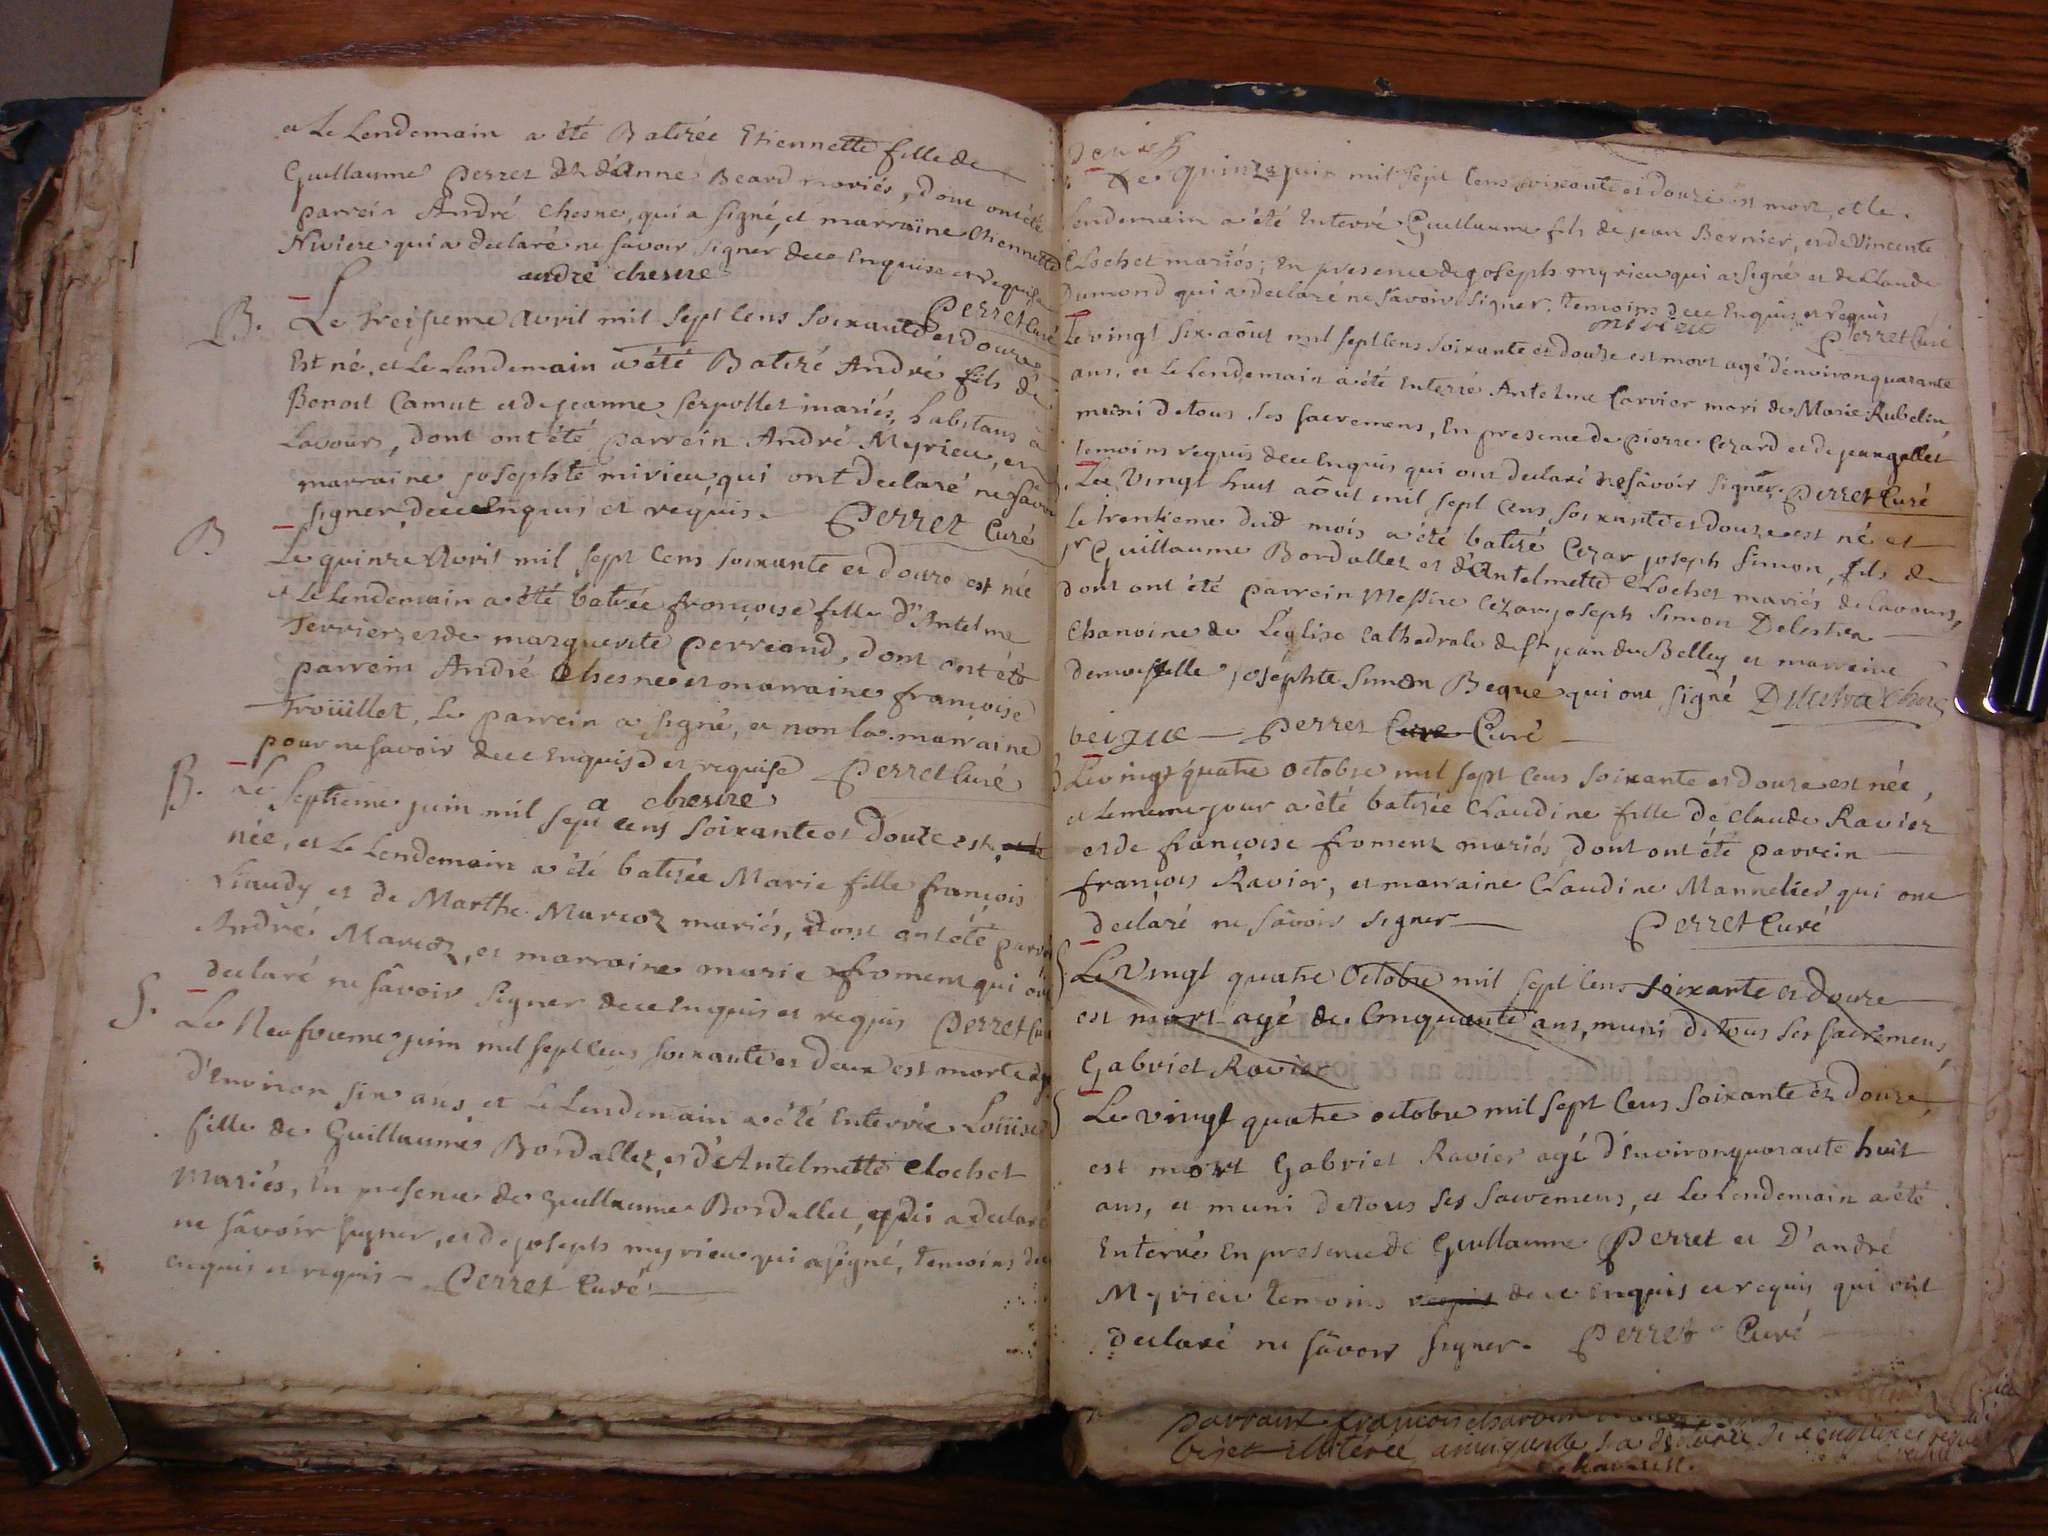 et Le Lendemain a été Batizée Etiennette fille de
Guillaume Perret et d'Anne Beard mariés, dont ont été
parrein André Chesne, qui a signé, et marraine Etiennette
Niviere qui a declaré ne savoir signer de ce Enquise et requise
andré chesne
Perret Curé
B. Le treisieme Avril mil sept Cens soixante et douze
Est né, et Le Lendemain a été Batizé André fils de
Benoit Camut et de jeanne Serpollet mariés, habitans à
Lavours, dont ont été parrein André Myrieu, et
marraine josephte mirieu qui ont declaré ne savoir
signer, de ce Enquis et requis. Perret Curé
B Le quinze Avril mil sept Cens soixante et douze est née
et Le Lendemain a été batizée françoise fille d'Antelme
ferrier, et de marguerite perreand, dont ont été
parrein André Chesne et marraine françoise
Troüillet, Le parrein a signé, et non la marraine
pour ne savoir de ce Enquise et requise Perret Curé
a chesne
B. Le septieme juin mil sept cens soixante et douze est
née, et Le Lendemain a été batizée Marie fille françois
Liaudy et de Marthe Marcoz mariés, dont ont été parrein
André Marcoz, et marraine marie froment qui ont
declaré ne sâvoir signer de ce Enquis et requis Perret Curé
S. Le Neufvieme juin mil sept Cens soixante et douze est morte agée
d'Environ six ans et Le Lendemain a été Enterrée Loüise
fille de Guillaume Bordallet, et d'Antelmette Clochet
Mariés, En presence de Guillaume Bordallet, qui a declaré
ne sâvoir signer, et de joseph myrieu qui a signé, temoins de ce
enquis et requis - Perret Curé
Le quinze juin mil sept Cens soixante et douze est mort, et le
Lendemain a été Enterré Guillaume fils de jean Bernier, et de Vincente
Clochet mariés; En presence de joseph myrieu qui a signé et de Claude
Dumond qui a declaré ne savoir signer. temoins de ce Enquis et requis
mirieu Perret Curé
Le vingt six aôut mil sept Cens soixante et douze est mort agé d'environ quarante
ans, et le lendemain a été Enterré Antelme Carrier mari de Marie Rubelin,
muni de tous ses sacremens, En presence de pierre Cezard et de jean gallet
temoins requis de ce Enquis qui ont declaré ne sâvoir signer. Perret Curé
Le Vingt huit aôut mil sept Cens soixante et douze est né et
le trentieme dud mois a été batizé Cezar joseph Simon, fils de
sr Guillaume Bordallet et d'Antelmette Clochet mariés de Lavours,
dont ont été parrein Messire Cezar joseph Simon Delestra
Chanoine de L'eglise Cathedrale de St jean du Belley et marraine
demoiselle josephte Simon Beque qui ont signé Delestra Chane
beigue - Perret Cure Curé
B Le vingt quatre octobre mil sept Cens soixante et douze est née,
et le meme jour a été batizée Claudine fille de Claude Ravier
et de françoise froment mariés dont ont été parrein
françois Ravier, et marraine Claudine Mannelier qui ont
declaré ne savoir signer Perret Curé
S Le Vingt quatre Octobre mil sept Cens soixante et douze
est mort agé de Cinquante ans, muni de tous ses sacremens,
Gabriel Ravier
S Le vingt quatre octobre mil sept Cens soixante et douze,
est mort Gabriel Ravier agé d'environ quarante huit
ans, et muni de tous ses sacremens, et Le Lendemain a été
Enterré En presence de Guillaume Perret et D'andré
Myrieu temoins requis de ce Enquis et requis qui ont
declaré ne sâvoir signer. Perret Curé